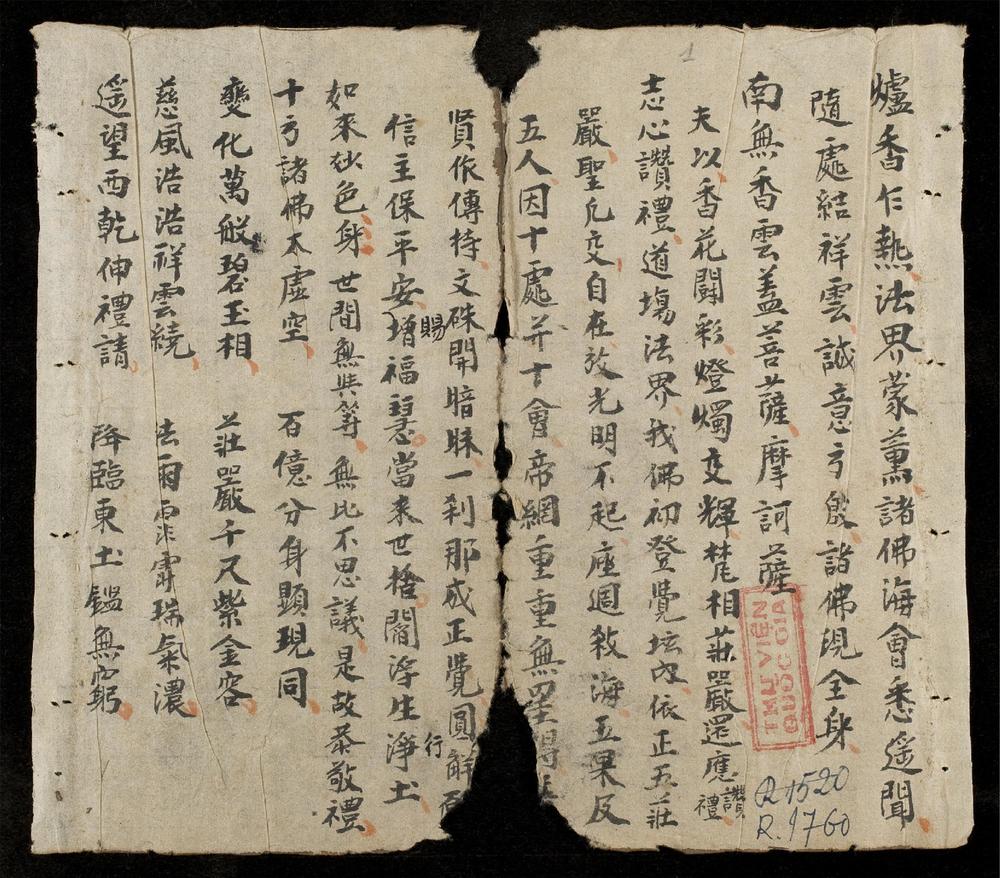 爐香乍熱法界蒙薫諸佛海會悉遥聞
隨處結祥雲誠意方殷諸佛現全身
南無香雲盖菩薩摩訶薩
夫以香花鬪彩燈燭交輝梵相莊嚴還應讃禮
志心讃禮道塲法界我佛初登覺坛内依正五莊
嚴聖凡交自在放光明不起座週敎海五果及
五人因十處并十會帝網重重無
賢依傳持文殊開暗昧一刹那成正覺圓觧
信主保平安增福慧當来世捨閻浮生淨土
賜
行
如來妙色身世間無與等無比不思議是故恭敬禮
十方諸佛本虚空 百億分身顯現同
變化萬般碧玉相 莊嚴千尺紫金容
慈風浩浩祥雲繞 法雨霏霏瑞氣濃
遥望西乾伸禮請 降臨東土鑑無窮
1
THƯ VIỆN
QUỐC GIA
R.1520
R.1760